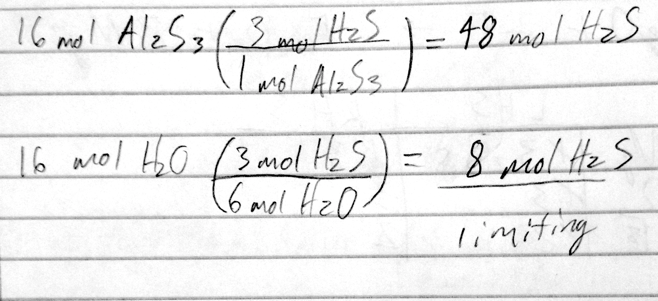 16 mol Al2S3 (3 mol H2S / 1 mol Al2S3) = 48 mol H2S
16 mol H2O (3 mol H2S / 6 mol H2O) = 8 mol H2S
limiting